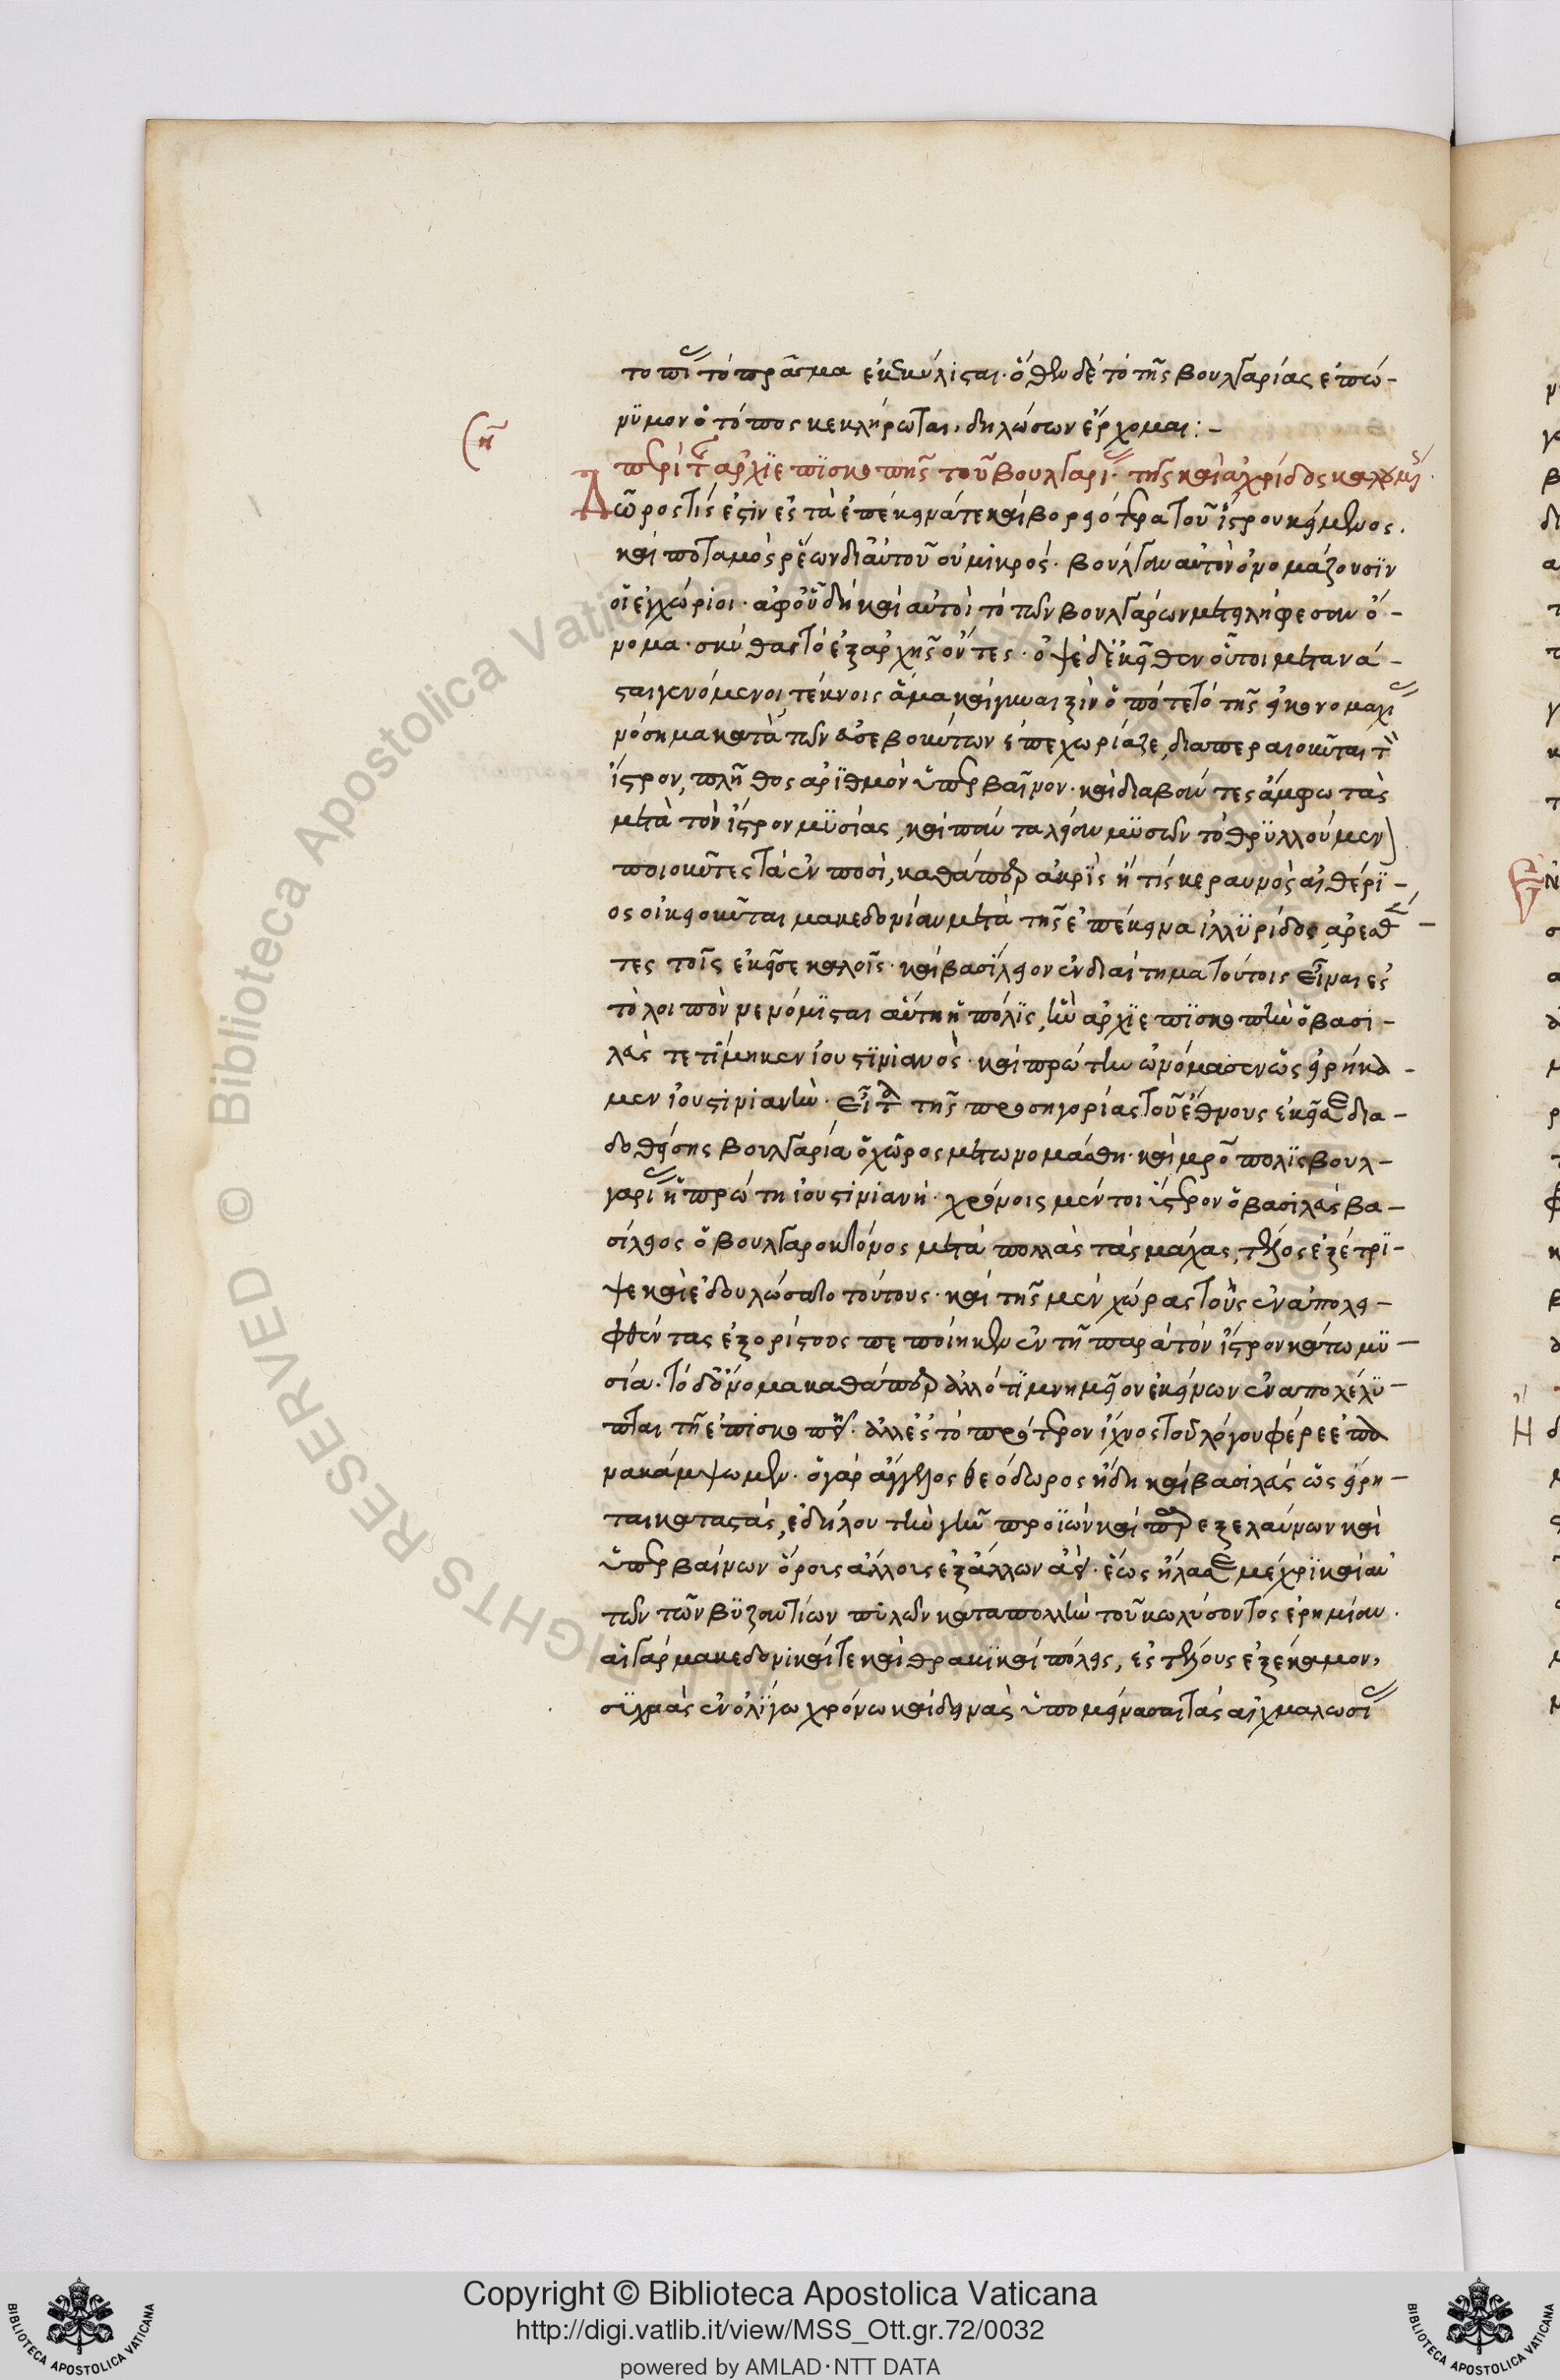 τοπί(ας) τὸ πρᾶγμα ἐκκεκύλισται· ὅθεν δὲ τὸ τῆς βουλγαρίας ἐπώ-
νϋμον ὁ τόπος κεκλήρωται, δηλώσων ἔρχομαι:-
η̄
περὶ τῆς ἀρχϊεπϊσκοπῆς τοῦ βουλγαρί(ας)· τῆς καὶ ἀχρίδος καλουμέν(ης)·
χῶρος τίς ἐστὶν ἐς τὰ ἐπέκεινά τε καὶ βορειότερα τοῦ ἴστρου κείμενος·
καὶ ποταμὸς ῥέων δι' αὐτοῦ οὐ μικρός· βούλγαν αὐτὸν ὀνομάζουσϊν
οἱ ἐγχώριοι· ἀφ' οὗ δὴ καὶ αὐτοὶ τὸ τῶν βουλγάρων μετειλήφεσαν ὄ-
νομα· σκύθαι τὸ ἐξ ἀρχῆς ὄντες· ὀψὲ δ' ἐκεῖθεν οὗτοι μετανά-
σται γενόμενοι, τέκνοις ἅμα καὶ γυναιξὶν ὁπότε τὸ τῆς εἰκονομαχί(ας)
νόσημα κατὰ τῶν εὐσεβούντων ἐπεχωρίαζε, διαπεραιοῦνται τὸν
ἴστρον, πλῆθος ἀρϊθμὸν ὑπερβαῖνον· καὶ διαβάντες ἄμφω τὰς
μετὰ τὸν ἴστρον μϋσίας, καὶ πάντα λείαν μϋσῶν τὸ θρϋλλούμεν(ον)
ποιοῦντες τὰ ἐν ποσὶ, καθάπερ ἀκρὶς ἤ τις κεραυνὸς αἰθέρϊ-
ος οἰκειοῦνται μακεδονίαν μετὰ τῆς ἐπέκεινα ἰλλϋρίδος, ἀρεσθέν-
τες τοῖς ἐκεῖσε καλοῖς· καὶ βασίλειον ἐνδιαίτημα τούτοις εἶναι ἐς
τὸ λοιπὸν νενόμϊσται αὕτη ἡ πόλϊς, ἣν ἀρχϊεπϊσκοπὴν ὁ βασι-
λεὺς τετίμηκεν ἰουστϊνιανός· καὶ πρώτην ὠνόμασεν ὡς εἰρήκα-
μεν ἰουστινιανήν· εἶτα τῆς προσηγορίας τοῦ ἔθνους ἐκεῖσε δια-
δοθείσης βουλγαρία ὁ χῶρος μετωνομάσθη· καὶ μητρόπολϊς βουλ-
γαρί(ας) ἡ πρώτη ἰουστινιανή· χρόνοις μέντοι ὕστερον ὁ βασιλεὺς βα-
σίλειος ὁ βουλγαροκτόνος μετὰ πολλὰς τὰς μάχας, τέλος ἐξέτρϊ-
ψε καὶ ἐδουλώσατο τούτους· καὶ τῆς μὲν χώρας τοὺς ἐναπολει-
φθέντας ἐξορίστους πεποίηκεν ἐν τῇ παρὰ τὸν ἴστρον κάτω μϋ-
σίᾳ· τὸ δ' ὄνομα καθάπερ ἄλλό τϊ μνημεῖον ἐκείνων ἐναπολέλϋ-
πται τῇ ἐπισκοπῇ· ἀλλ' ἐς τὸ πρότερον ἴχνος τοῦ λόγου φέρε ἐπα-
νακάμψωμεν· ὁ γὰρ ἄγγελος θεόδωρος ἤδη καὶ βασιλεὺς ὡς εἴρη-
ται καταστὰς, ἐδήλου τὴν γῆν προϊὼν καὶ παρεξελαύνων καὶ
ὑπερβαίνων ὅροις ἄλλοις ἐξ ἄλλων ἀεὶ· ἕως ἤλασε μέχρϊ καὶ αὐ
τῶν τῶν βϋζαντίων πυλῶν κατὰ πολλὴν τοῦ κωλύσοντος ἐρημίαν·
αἱ γὰρ μακεδονικαί τε καὶ θρακϊκαὶ πόλεις, ἐς τέλους ἐξέκαμον,
συχνὰς ἐν ὀλίγῳ χρόνῳ καὶ δεινὰς ὑπομείνασαι τὰς αἰχμαλωσί(ας)
Copyright © Biblioteca Apostolica Vaticana
http://digi.vatlib.it/view/MSS_Ott.gr.72/0032
powered by AMLAD·NTT DATA